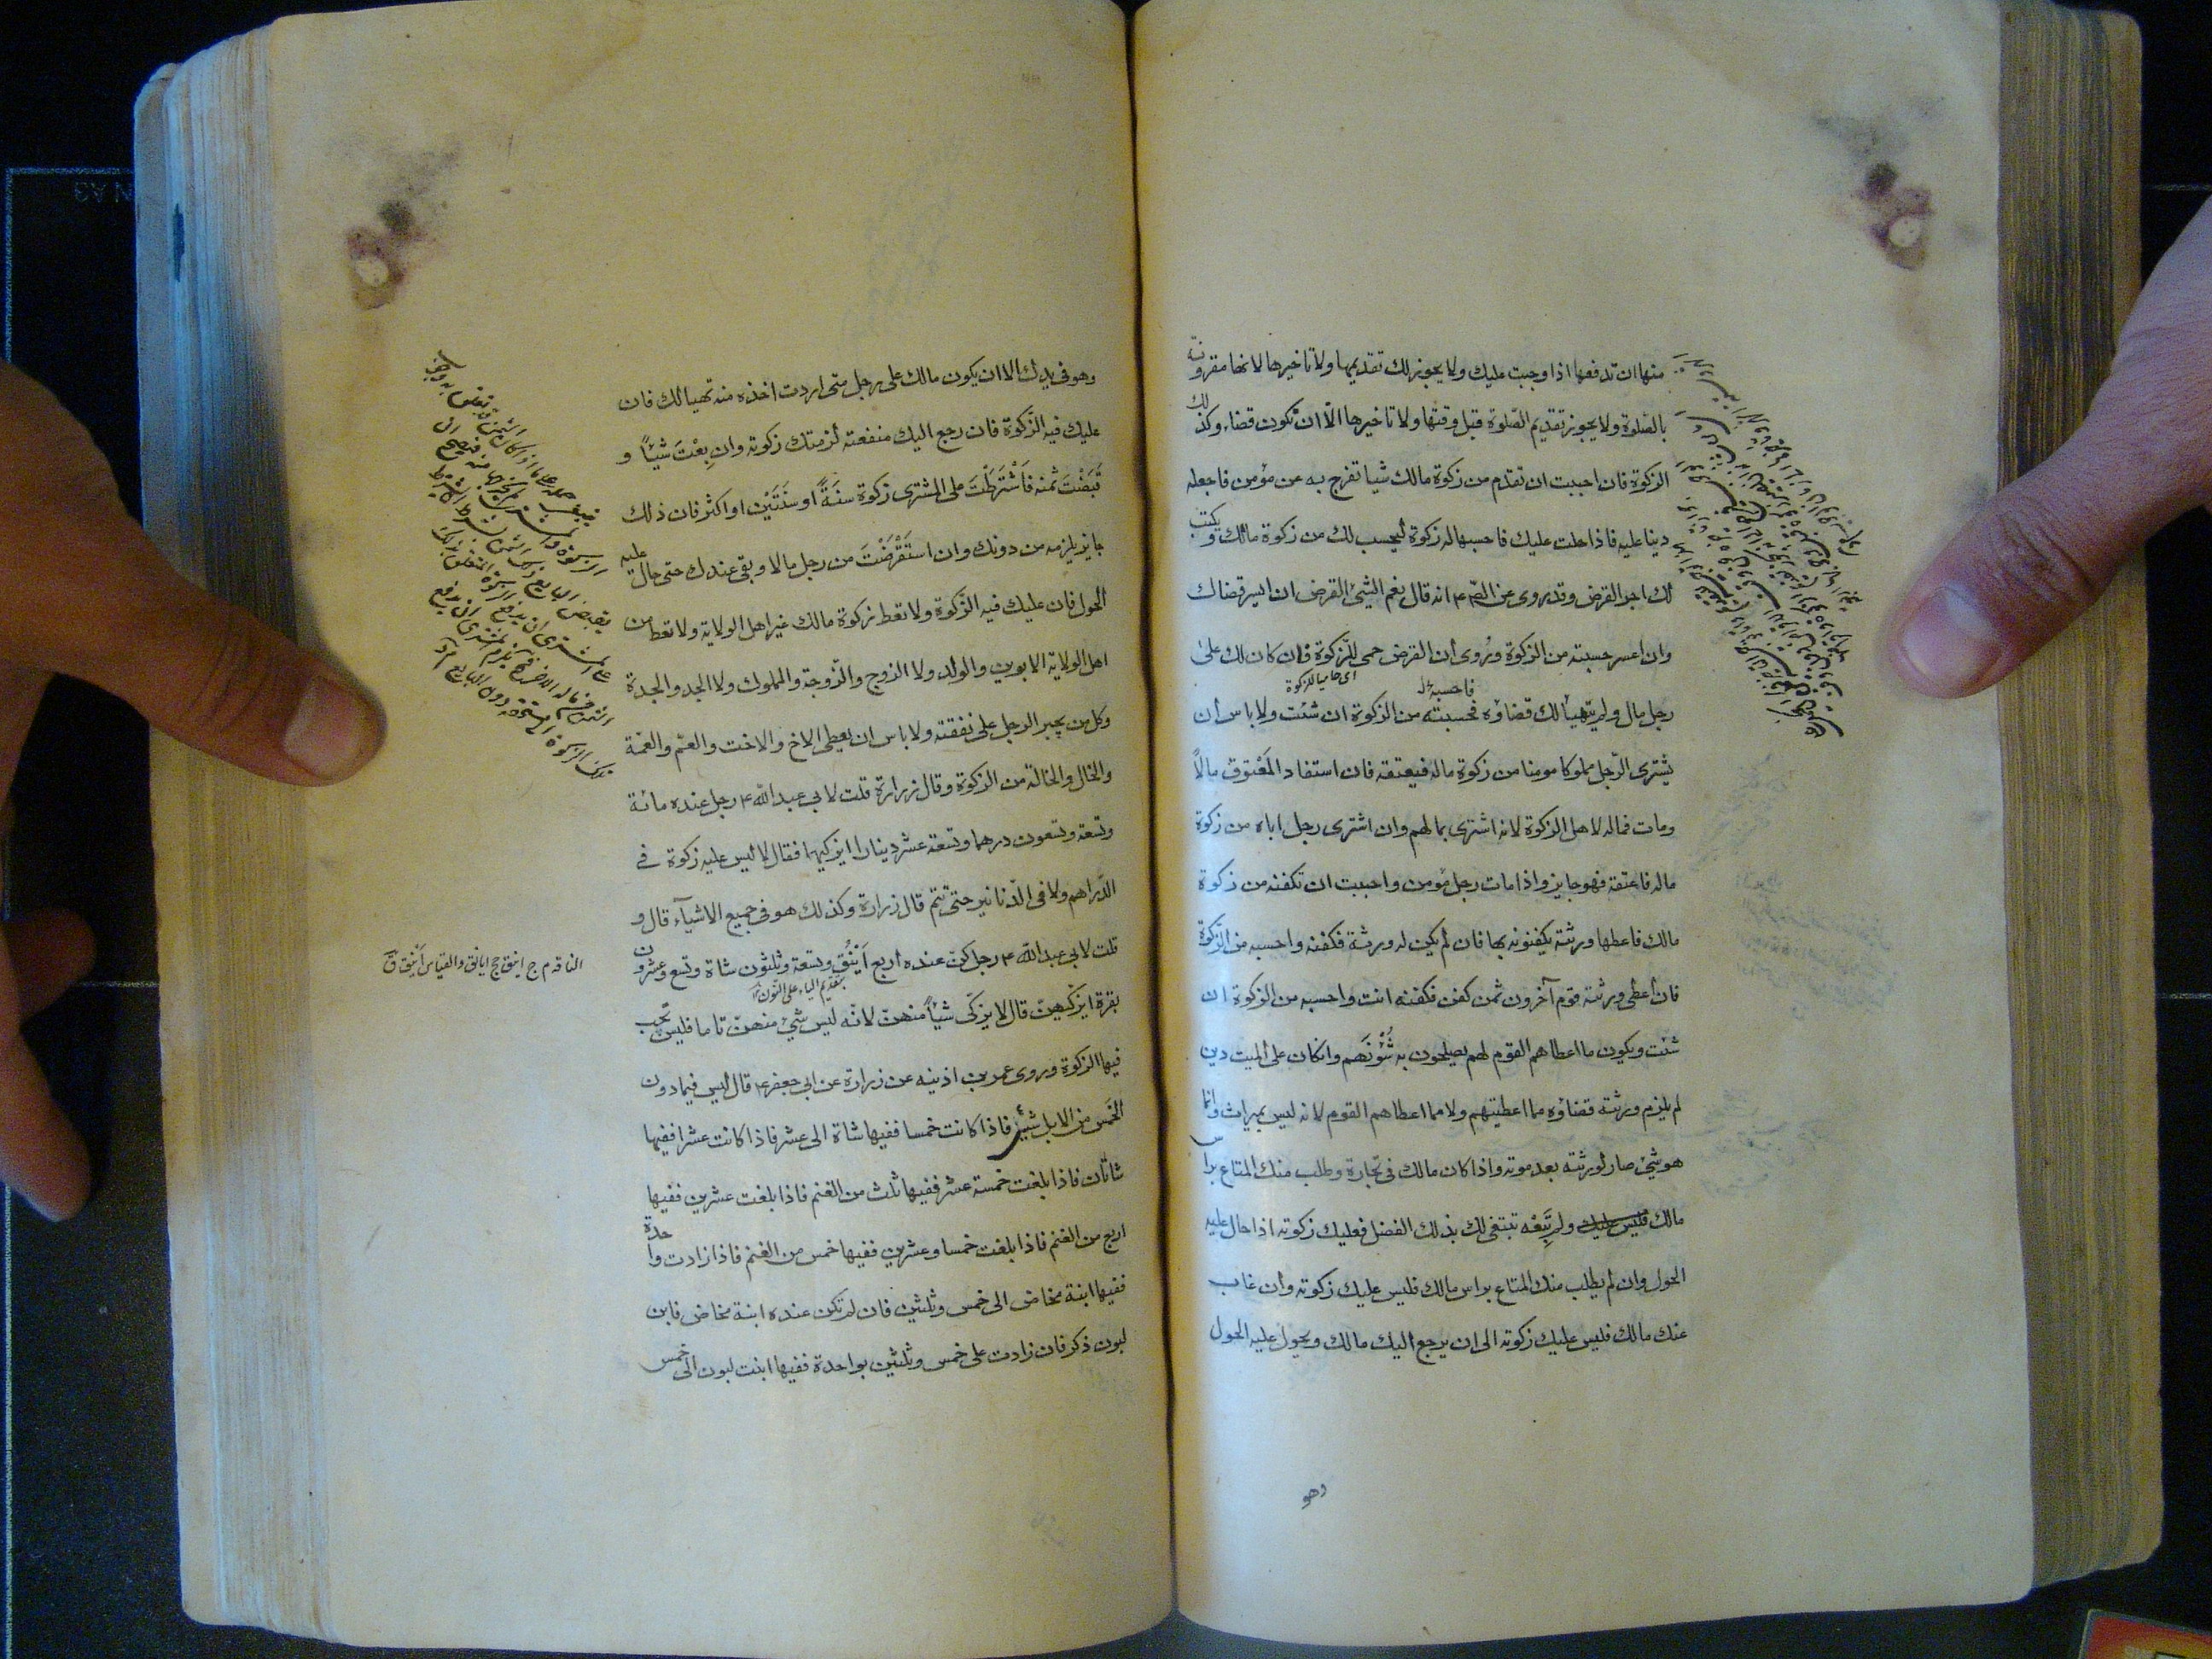 منها ان تدفعها اذا وجبت عليك ولا يجوز لك تقديمها ولا تاخيرها لانها مقرونة
بالصّلوة ولا يجوز تقديم الصّلوة قبل وقتها ولا تاخيرها الّا ان تكون قضاء وكذلك
الزكوة فان احببت ان تقدم من زكوة مالك شيا تفرج به عن مؤمن فاجعله
دينا عليه فاذا حلت عليك فاحسبها له زكوة ليحسب لك من زكوة مالك ويكتب
لك اجر القرض وقد روى عن الصّ ع انه قال نعم الشئ القرض ان ايسر قضاك
وان اعسر حسبته من الزكوة وروى ان القرض حمى للزّكوة فان كان لك على
اى حاميا للزكوة
فاحسبه
رجل مال ولم يتهيأ لك قضاؤه فحسبته من الزكوة ان شئت ولا باس أن
يشترى الرّجل مملوكا مومنا من زكوة ماله فيعتقه فان استفاد المَعْتوقُ مالاً
ومات فماله لاهل الزكوة لانه اشترى بمالهم وان اشترى رجل اباه من زكوة
ماله فاعتقه فهو جايز واذا مات رجل مؤمن واحببت ان تكفنه من زكوة
مالك فاعطها ورثته يكفنونه بها فان لم يكن له ورثة فكفنه واحسبه من الزّكوة
فان أعطى ورثته قوم آخرون ثمن كفن فكفنه انت واحسبه من الزكوة ان
شئت ويكون ما اعطاهم القوم لهم يصلحون به شُؤنَهم وانكان على الميت دين
لم يلزم ورثته قضاؤه مما اعطيتهم ولا مما اعطاهم القوم لانه ليس بميراث وانما
هو شئ صار لورثته بعد موته واذا كان مالك فى تجارة وطلب منك المتاع براس
مالك فليس عليك ولم تَبِعْه تبتغى لك بذلك الفضل فعليك زكوته اذا حال عليه
الحول وان لم يطلب منك المتاع براس مالك فليس عليك زكوته وان غاب
عنك مالك فليس عليك زكوته الى ان يرجع اليك مالك ويحول عليه الحول
وهو
وهو فى يدك الا ان يكون مالك على رجل متى اردت اخذه منه تهيا لك فان
عليك فيه الزّكوة فان رجع اليك منفعته لزمتك زكوته وان بِعْتَ شيئاً و
قَبَضْتَ ثمنه فَاشْتَرَطْتَ على المشترى زكوة سنَةً او سنَتَيْن او اكثر فان ذلك
جايز يلزمه من دونك وان استَقْرَضْتَ من رجل مالا وبقى عندك حتى حال عليه
الحول فان عليك فيه الزّكوة ولا تعط زكوة مالك غير اهل الولاية ولا تعط من
اهل الولاية الابوين والولد ولا الزوج والزّوجة والمملوك ولا الجد والجدة
وكل من يجبر الرجل على نفقته ولا باس ان يعطى الاخ والاخت والعمّ والعمّة
والخال والخالة من الزكوة وقال زرارة قلت لابى عبد الله ع رجل عنده مائة
وتسعة وتسعون درهما وتسعة عشر دينارا ايزكيها فقال لا ليس عليه زكوة فى
الدّراهم ولا فى الدّنانير حتى تتم قال زرارة وكذلك هو فى جميع الاشيآء قال و
قلت لابى عبد الله ع رجل كنّ عنده اربع اَيْنُقٍ وتسعة وثلثون شاة وتسع وعشرون
بتقديم الياء على النّون
بقرة ايزكّيهنّ قال لا يزكّى شيئاً منهنّ لانه ليس شئ منهنّ تاما فليس تجب
فيها الزكوة وروى عمر بن اذينه عن زرارة عن ابى جعفر ع قال ليس فيما دون
الخمس من الابل شئ فاذا كانت خمسا ففيها شاة الى عشر فاذا كانت عشرا ففيها
شاتان فاذا بلغت خمسة عشر ففيها ثلث من الغنم فاذا بلغت عشرين ففيها
اربع من الغنم فاذا بلغت خمسا وعشرين ففيها خمس من الغنم فاذا زادت واحدة
ففيها ابنة مخاض الى خمس وثلثين فان لم تكن عنده ابنة مخاض فابن
لبون ذكر فان زادت على خمس وثلثين بواحدة ففيها ابنت لبون الى خمس
الناقة م ج اينق ج ايانق والقياس اَنْيُق ق